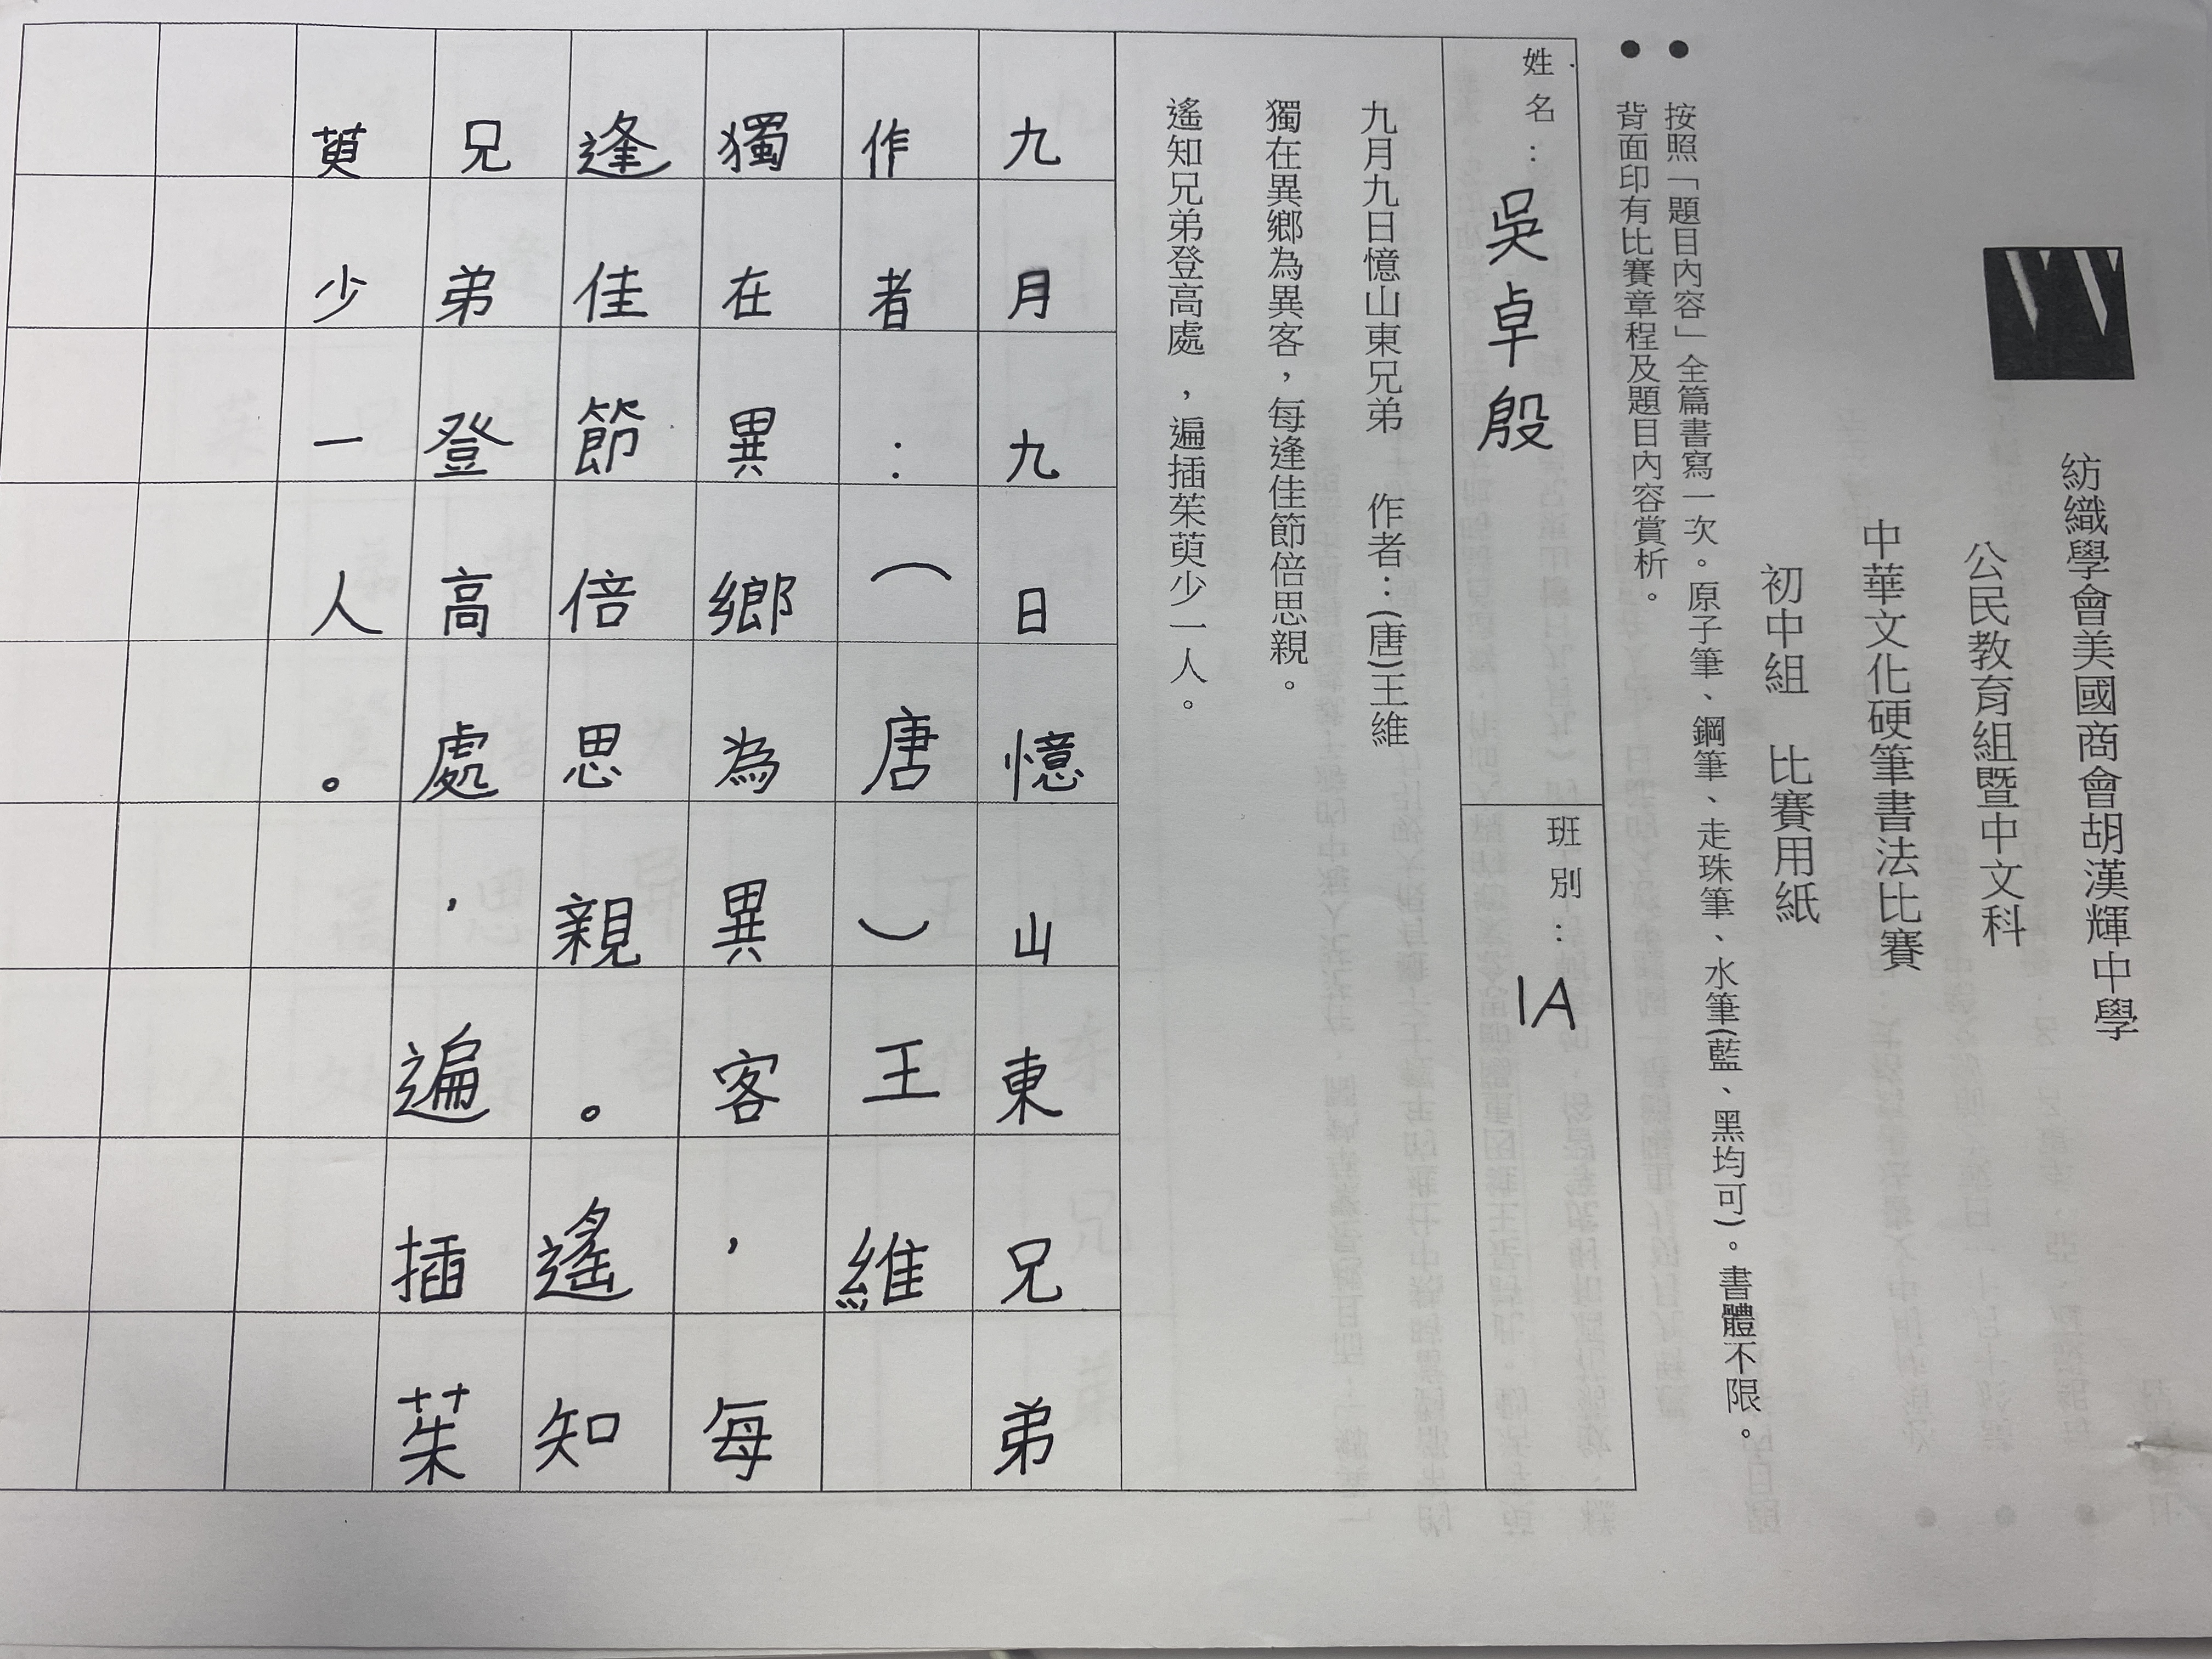 紡織學會美國商會胡漢輝中學
公民教育組暨中文科
中華文化硬筆書法比賽
初中組 比賽用紙
● 按照「題目內容」全篇書寫一次。原子筆、鋼筆、走珠筆、水筆(藍、黑均可)。書體不限。
● 背面印有比賽章程及題目內容賞析。
姓名：吳卓殷 班別：1A
九月九日憶山東兄弟 作者：(唐)王維
獨在異鄉為異客，每逢佳節倍思親。
遙知兄弟登高處，遍插茱萸少一人。
九月九日憶山東兄弟
作者：（唐）王維
獨在異鄉為異客，每
逢佳節倍思親。遙知
兄弟登高處，遍插茱
萸少一人。